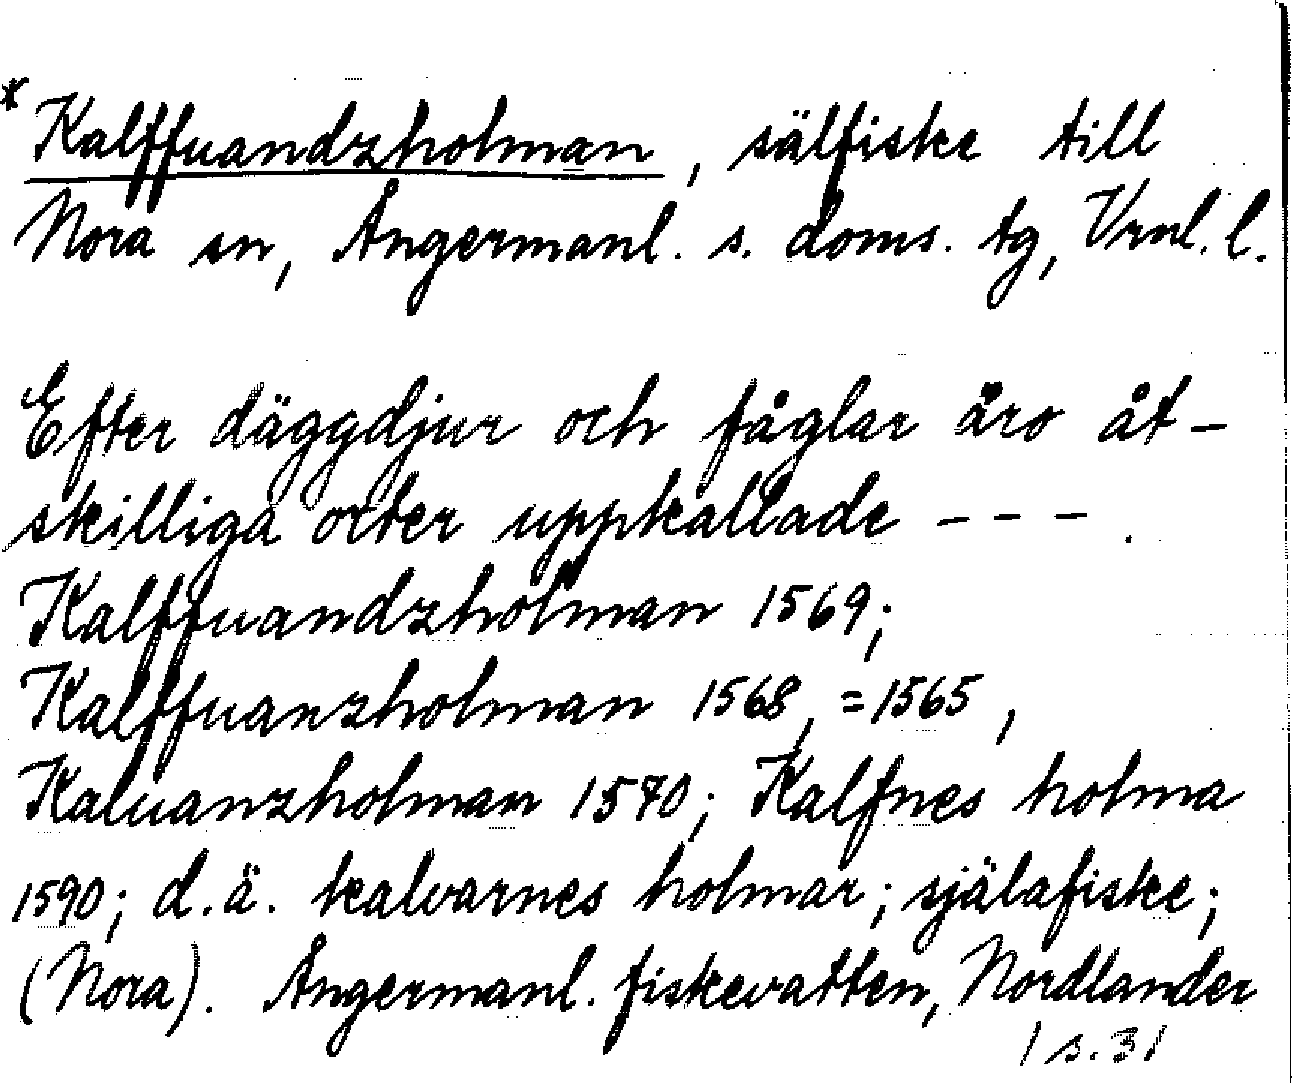 * Kalffuandzholman, sälfiske till
Nora sn, Ångermanl. s. doms. tg, Vrnl. l.
Efter däggdjur och fåglar äro åt-
skilliga orter uppkallade - - - .
Kalffuandzholman 1569;
Kalffuanzholman 1568, =1565,
Kaluanzholman 1570; Kalfnes holma
1590; d.ä. kalvarnes holmar; själafiske;
(Nora). Ångermanl. fiskevatten, Nordlander
/ s. 3/